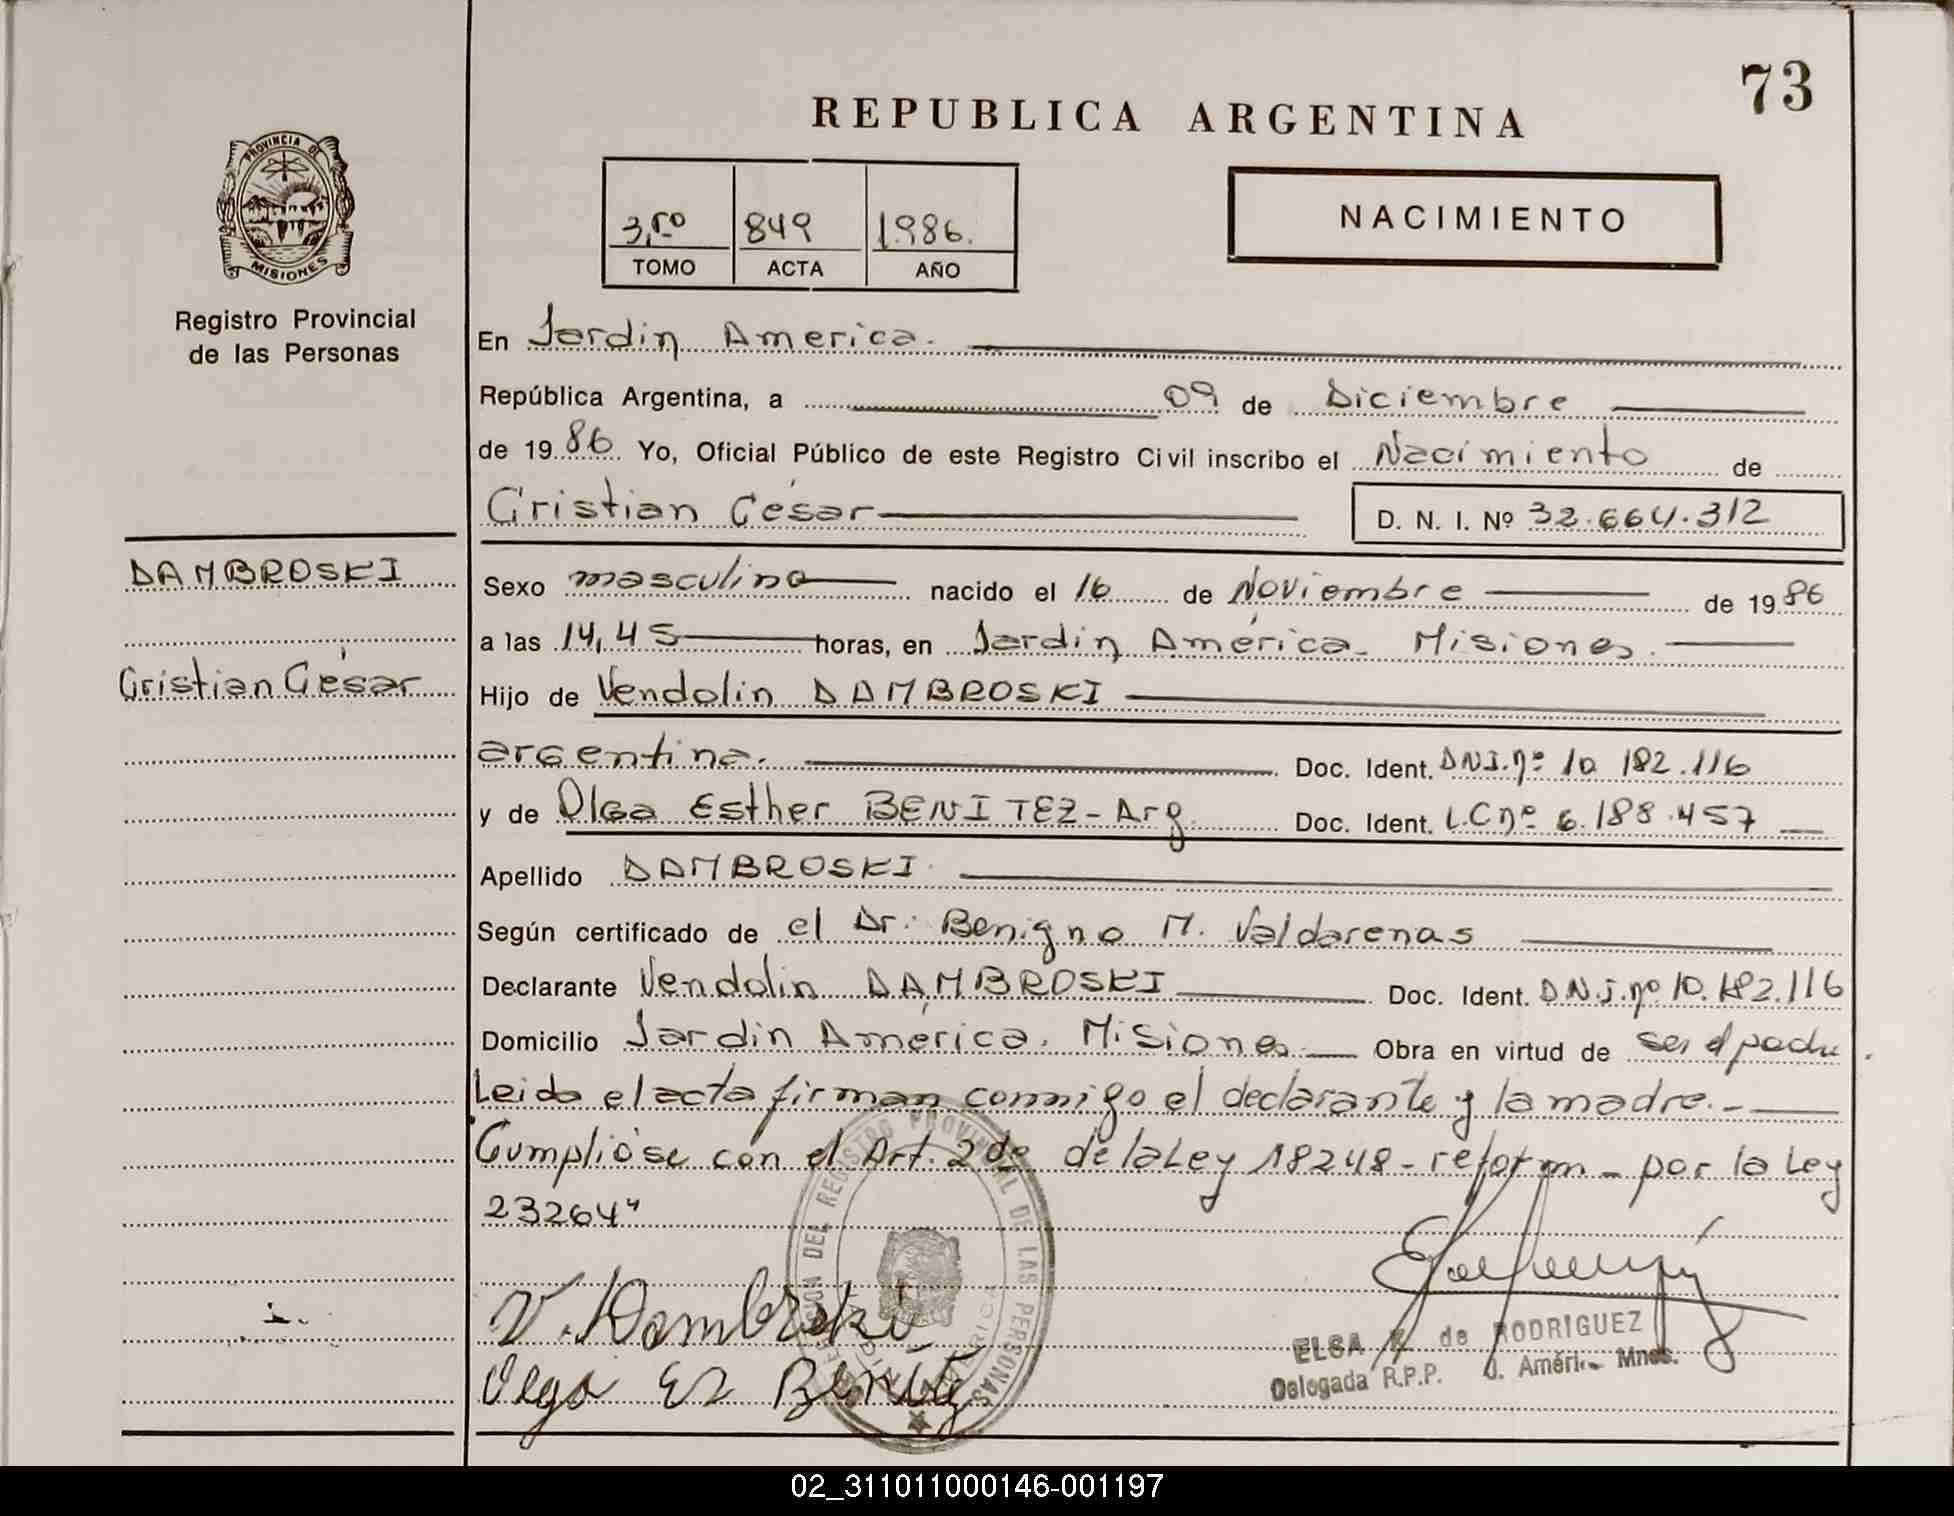 73
REPUBLICA ARGENTINA
PROVINCIA DE
MISIONES
Registro Provincial
de las Personas
3,ro 849 1.986.
TOMO ACTA AÑO
NACIMIENTO
En Jardin America.
República Argentina, a 09 de Diciembre
de 1986. Yo, Oficial Público de este Registro Civil inscribo el Nacimiento de
Cristian César D. N. I. Nº 32.664.312
DAMBROSKI
Cristian César
Sexo masculino nacido el 16 de Noviembre de 1986
a las 14,45 horas, en Jardin América. Misiones.
Hijo de Vendolin DAMBROSKI
argentina. Doc. Ident. DNI.nº 10 182.116
y de Olga Esther BENITEZ - Arg. Doc. Ident. L.C nº 6.188.457
Apellido DAMBROSKI.
Según certificado de el Dr. Benigno M. Valdarenas
Declarante Vendolin DAMBROSKI Doc. Ident. D.N.I.nº 10.182.116
Domicilio Jardin América. Misiones Obra en virtud de ser el padre.
Leido el acta firman conmigo el declarante y la madre.-
Cumplióse con el Art. 2do de la Ley 18248 - reform - por la Ley
23264"
V. Dambroski
Olga Es Benitez
REGISTRO PROVINCIAL DE LAS PERSONAS
ELSA de RODRIGUEZ
Delegada R.P.P. J. América Mnes.
02_311011000146-001197